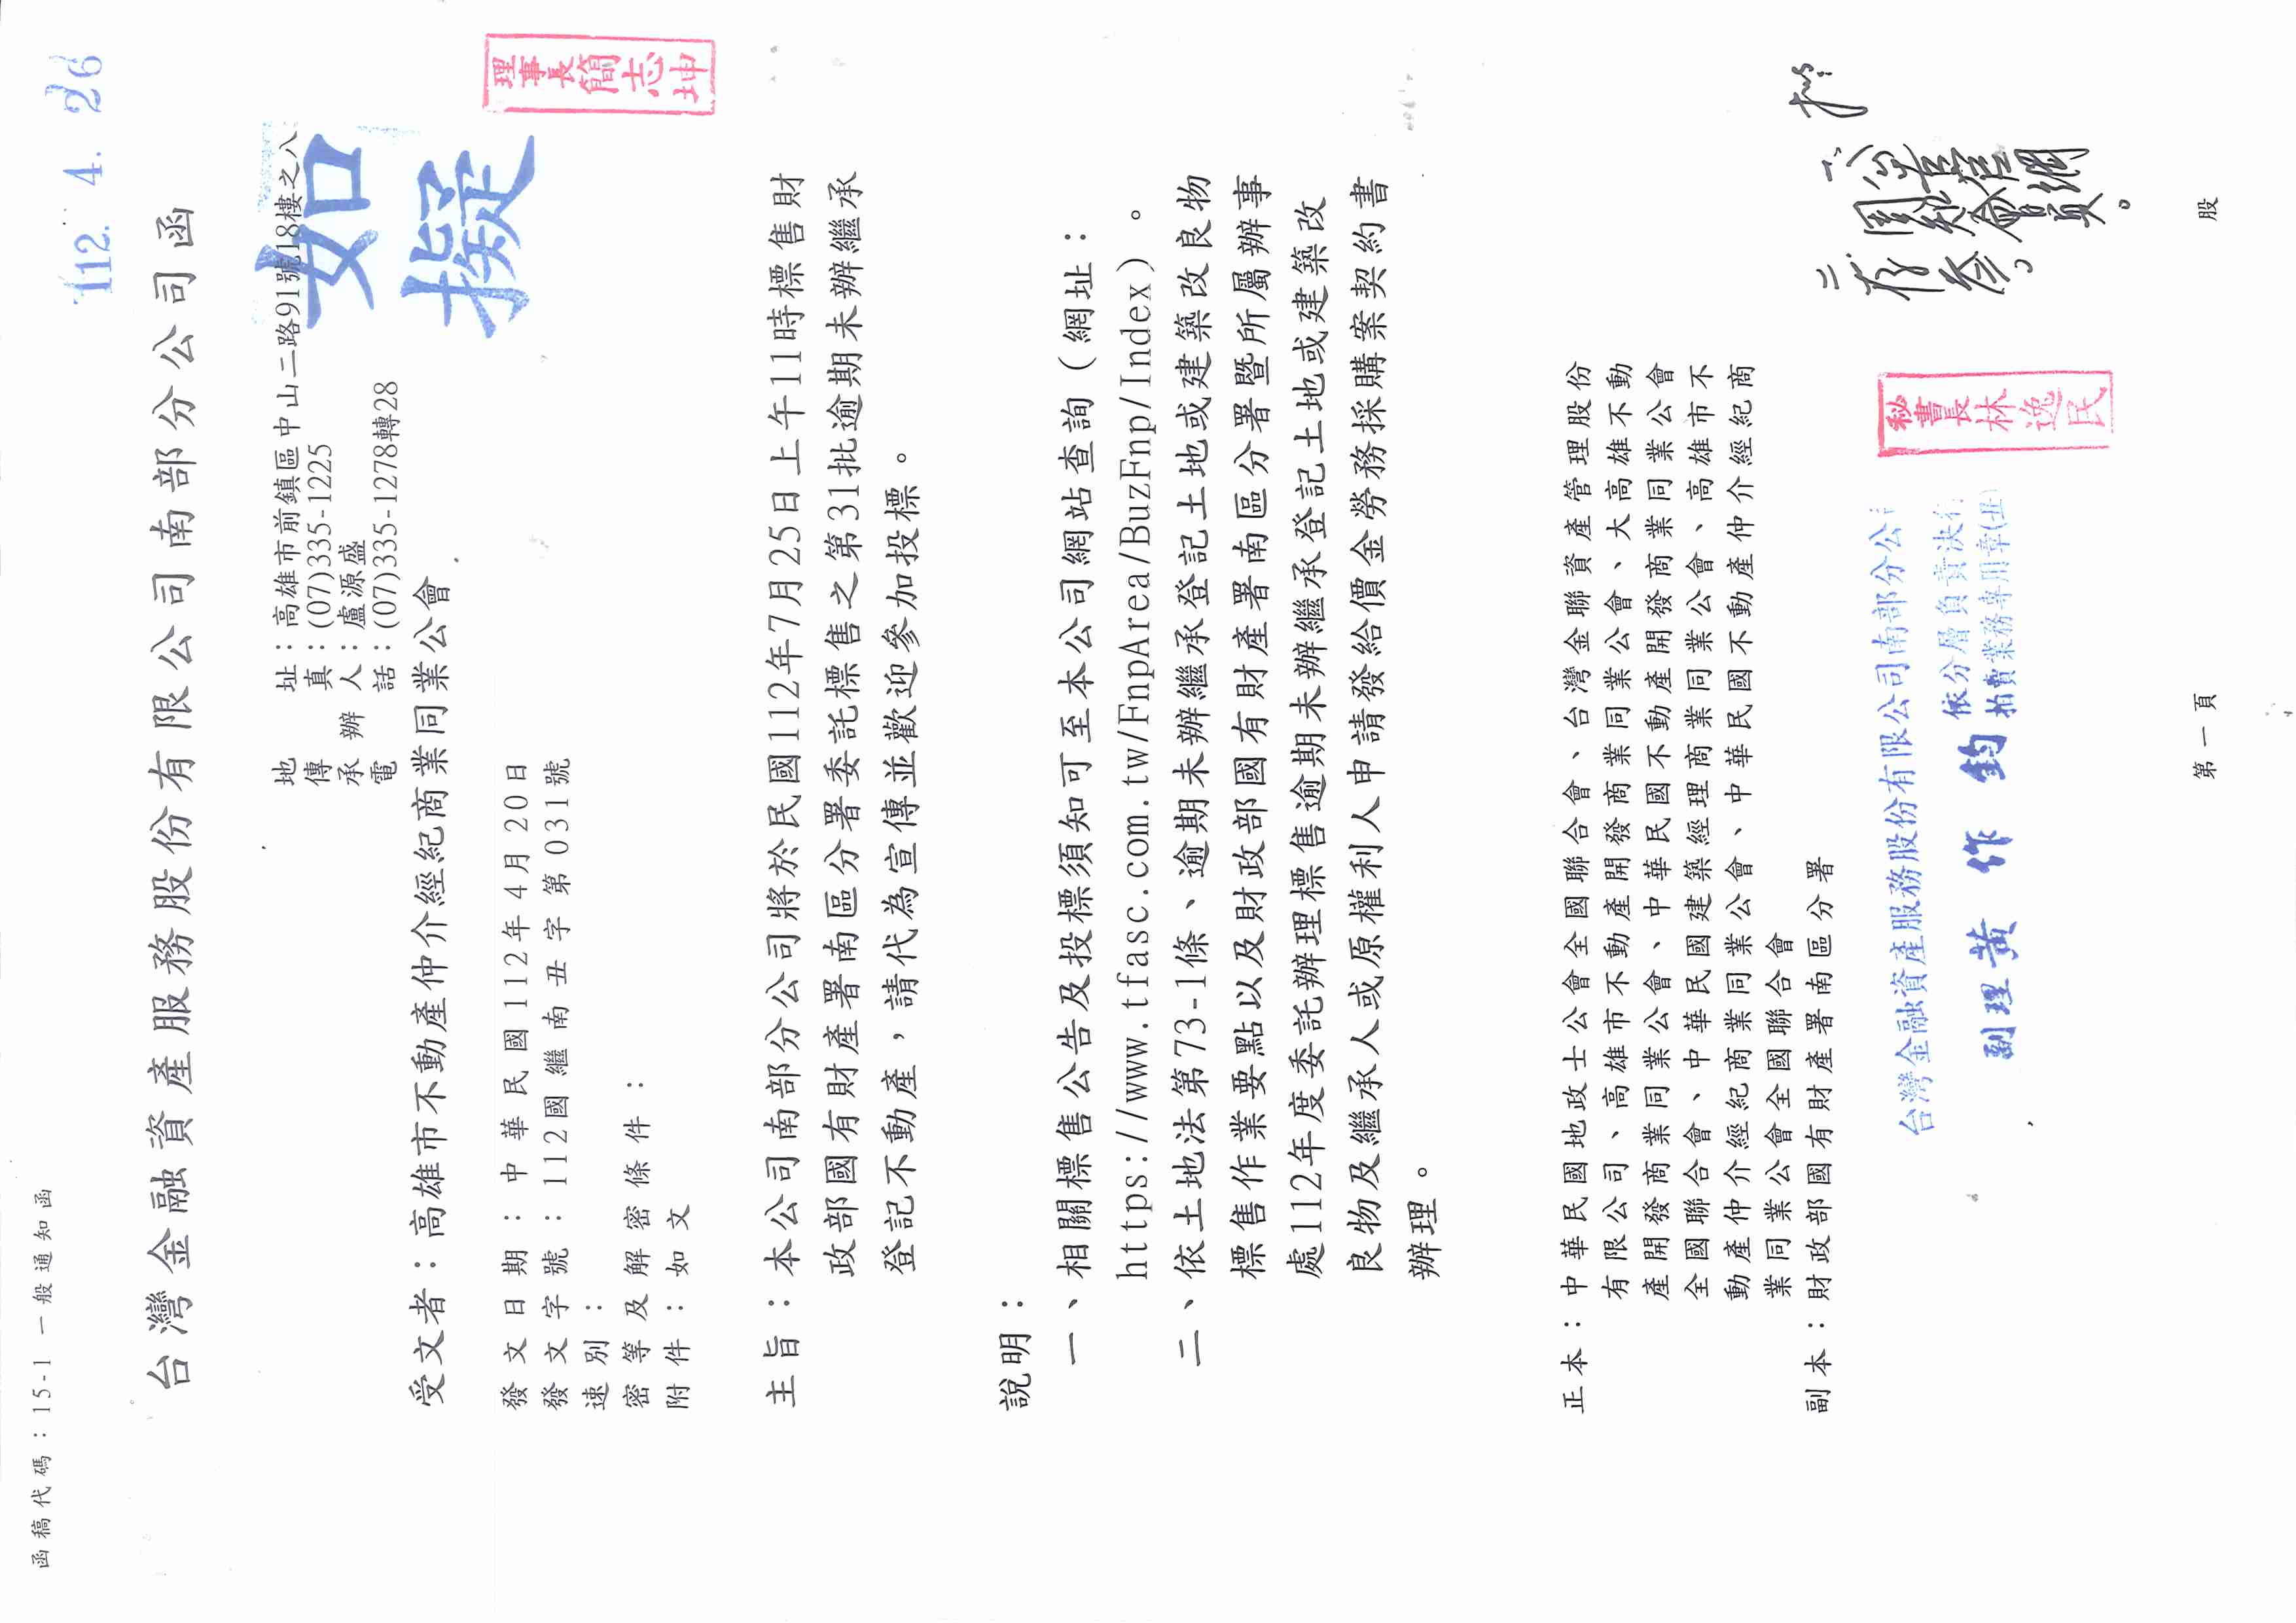 函稿代碼：15-1 一般通知函
112. 4. 26
台灣金融資產服務股份有限公司南部分公司函
地 址：高雄市前鎮區中山二路91號18樓之八
傳 真：(07)335-1225
承 辦 人：盧源盛
電 話：(07)335-1278轉28
如
擬
理事長簡志坤
受文者：高雄市不動產仲介經紀商業同業公會
發文日期：中華民國112年4月20日
發文字號：112國繼南丑字第031號
速別：
密等及解密條件：
附件：如文
主旨：本公司南部分公司將於民國112年7月25日上午11時標售財
政部國有財產署南區分署委託標售之第31批逾期未辦繼承
登記不動產，請代為宣傳並歡迎參加投標。
說明：
一、相關標售公告及投標須知可至本公司網站查詢（網址：
https://www.tfasc.com.tw/FnpArea/BuzFnp/Index）。
二、依土地法第73-1條、逾期未辦繼承登記土地或建築改良物
標售作業要點以及財政部國有財產署南區分署暨所屬辦事
處112年度委託辦理標售逾期未辦繼承登記土地或建築改
良物及繼承人或原權利人申請發給價金勞務採購案契約書
辦理。
正本：中華民國地政士公會全國聯合會、台灣金聯資產管理股份
有限公司、高雄市不動產開發商業同業公會、大高雄不動
產開發商業同業公會、中華民國不動產開發商業同業公會
全國聯合會、中華民國建築經理商業同業公會、高雄市不
動產仲介經紀商業同業公會、中華民國不動產仲介經紀商
業同業公會全國聯合會
副本：財政部國有財產署南區分署
台灣金融資產服務股份有限公司南部分公
依分層負責決行
副理黃作鈞 拍賣業務專用章(丑)
秘書長林逸民
擬
一、公告官網
周知會員。
二、存參。
第一頁
股